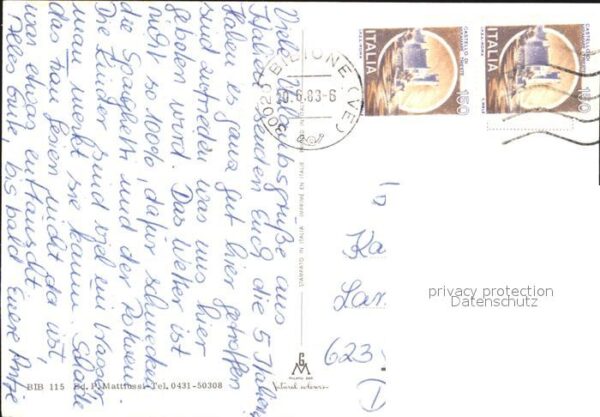 Viele Urlaubsgrüße aus
Italien senden Euch die 5 Italiener
Haben es ganz gut hier getroffen
sind zufrieden was uns hier
geboten wird. Das Wetter ist
nicht so 100%, dafür schmecken
die Spaghetti und der Rotwein.
Die Kinder sind viel im Wasser
man merkt sie kaum. Schade
das Frau ist,
was etwas enttäuscht
Alles Gute, bis bald Euere
BIB 115 Ed. P. Mattiussi - Tel. 0431-50308
30020 BIBIONE (VE)
6.83-6
CASTELLO DI
ITALIA
150
CASTELLO DI
ITALIA
150
GM
MILANO
Natural colours
Ka
Lan
623
D
privacy protection
Datenschutz